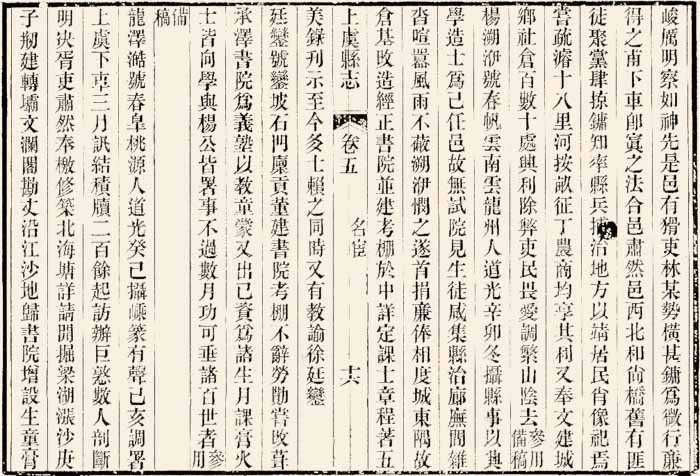 峻厲明察如神先是邑有猾吏林某勢橫甚鏞爲微行廉
得之甫下車卽寘之法合邑肅然邑西北和尙橋舊有匪
徒聚黨肆掠鏞知率縣兵捕治地方以靖居民肖像祀焉
嘗疏濬十八里河按畝征丁農商均享其利又奉文建城
鄉社倉百數十處興利除弊吏民畏愛調繁山陰去參用備稿
楊溯洢號春帆雲南雲龍州人道光辛卯冬攝縣事以興
學造士爲己任邑故無試院見生徒咸集縣治廊廡間雜
沓喧囂風雨不蔽溯洢憫之遂首捐廉俸相度城東隅故
倉基改造經正書院並建考棚於中詳定課士章程著五
上虞縣志 卷五 名宦 十六
美錄刊示至今多士賴之同時又有教諭徐廷鑾
廷鑾號鑾坡石門廩貢董建書院考棚不辭勞勩嘗改葺
承澤書院爲義塾以教童蒙又出己貲爲諸生月課膏火
士皆向學與楊公皆署事不過數月功可垂諸百世者參用備稿
龍澤澔號春皐桃源人道光癸己攝嵊篆有聲己亥調署
上虞下車三月訊結積牘二百餘起訪辦巨憝數人剖斷
明决胥吏肅然奉檄修築北海塘詳請開掘梁湖漲沙庚
子剏建轉壩文瀾閣勘丈沿江沙地歸書院增設生童膏